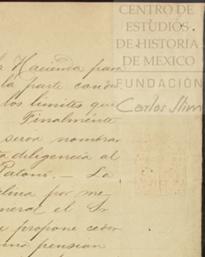 CENTRO DE
ESTUDIOS
DE HISTORIA
DE MEXICO
FUNDACIÓN
Carlos Slim
Hacienda para
la parte cond
los limites que
Finalmente
seran nombrar
diligencia al
Patoni.— La
por me
neral el Sr
propone cobr
pension